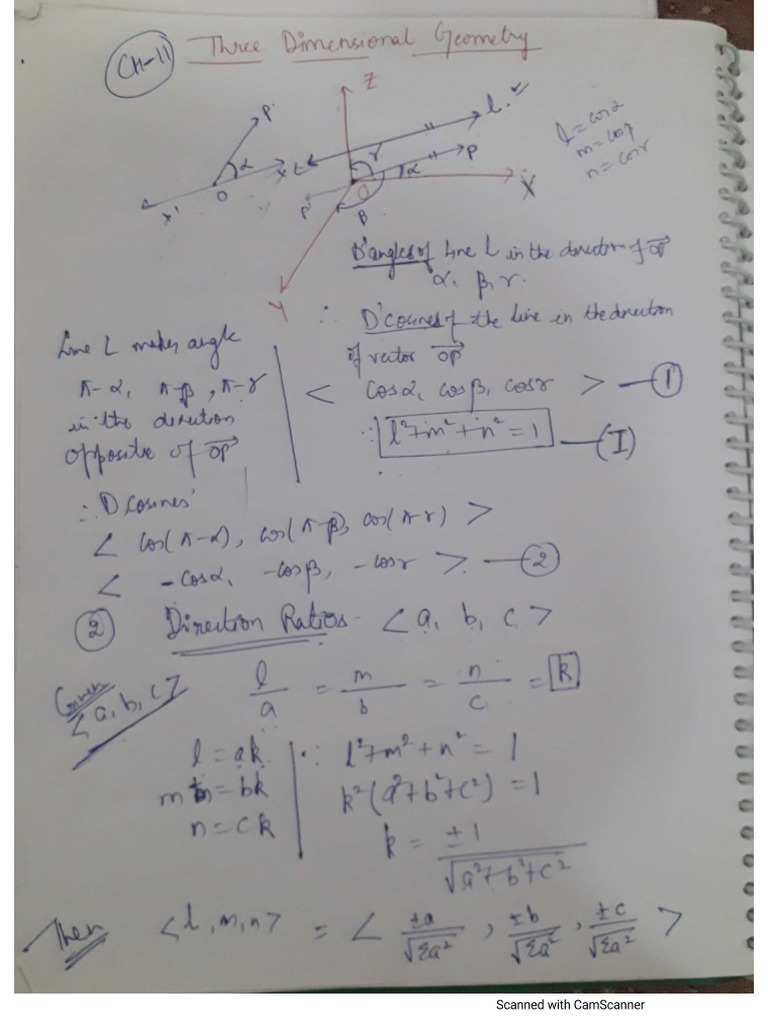 CH-11 Three Dimensional Geometry
Z
P
l
l = cosα
m = cosβ
n = cosγ
α
X
X'
O
L
γ
P
α
X
P'
O
β
Y
D'angles of line L in the direction of OP
α, β, γ.
∴ D'cosines of the line in the direction
of vector OP
< cosα, cosβ, cosγ > —①
∴ l²+m²+n² = 1 —(I)
Line L makes angle
π-α, π-β, π-γ
in the direction
opposite of OP
∴ D cosines
< cos(π-α), cos(π-β), cos(π-γ) >
< -cosα, -cosβ, -cosγ > —②
② Direction Ratios - < a, b, c >
Given
< a, b, c >
l/a = m/b = n/c = k
l = ak
m = bk
n = ck
∵ l²+m²+n² = 1
k²(a²+b²+c²) = 1
k = ±1/√a²+b²+c²
Then <l, m, n> = < ±a/√Σa², ±b/√Σa², ±c/√Σa² >
Scanned with CamScanner